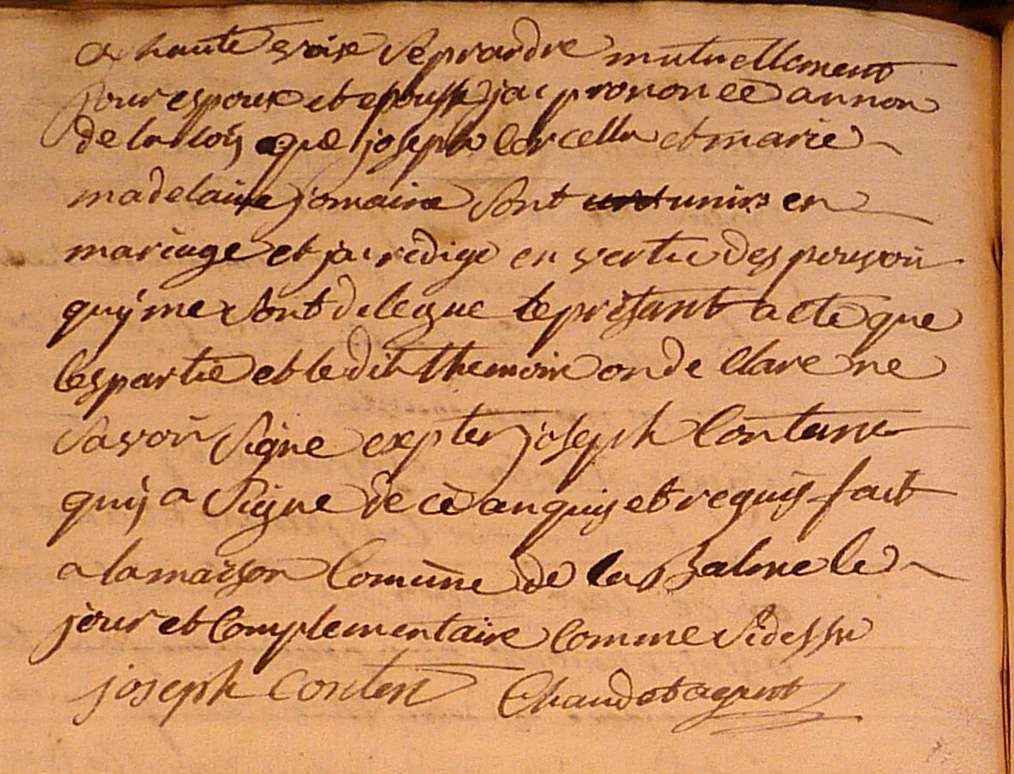 a haute voixe se prandre mutuellement
pour espoux et epousse j'ai prononcé au non
de la loij que joseph Corcella et marie
madelaine jomaire sont unirs en
mariage et jai redigé en vertu des pouvoir
quij me sont delegue le présant acte que
les partie et le dit themoin on de clare ne
savoir signe expter joseph Conten
quij a signe de ce anquis et requis fait
a la maison Comune de la Balme le
jour et complementaire comme sidessu
joseph conten Chaudet agent